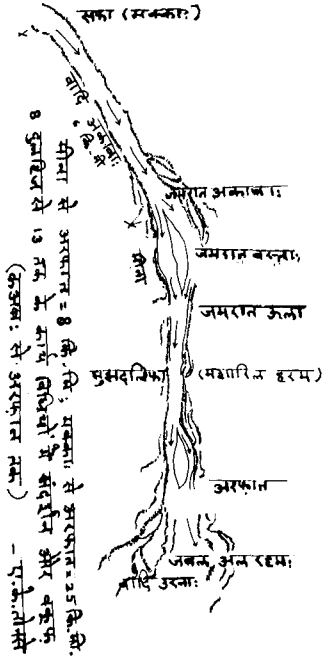 सफा (मक्का:)
वादि अकाबा: ६ कि.मी.
जमरात अकाबा:
जमरात वस्ता:
मीना
जमरात ऊला
मुसदलिफा (मशारिल हरम)
अरफात
जबल अल रहम:
वादि उरना:
मीना से अरफात = 8 कि.मि; मक्का: से अरफात = 25 कि.मि.
8 दुलहिज से 13 तक के कार्य विधियों में संदर्शन और वकूफ
(कअबा: से अरफात तक)